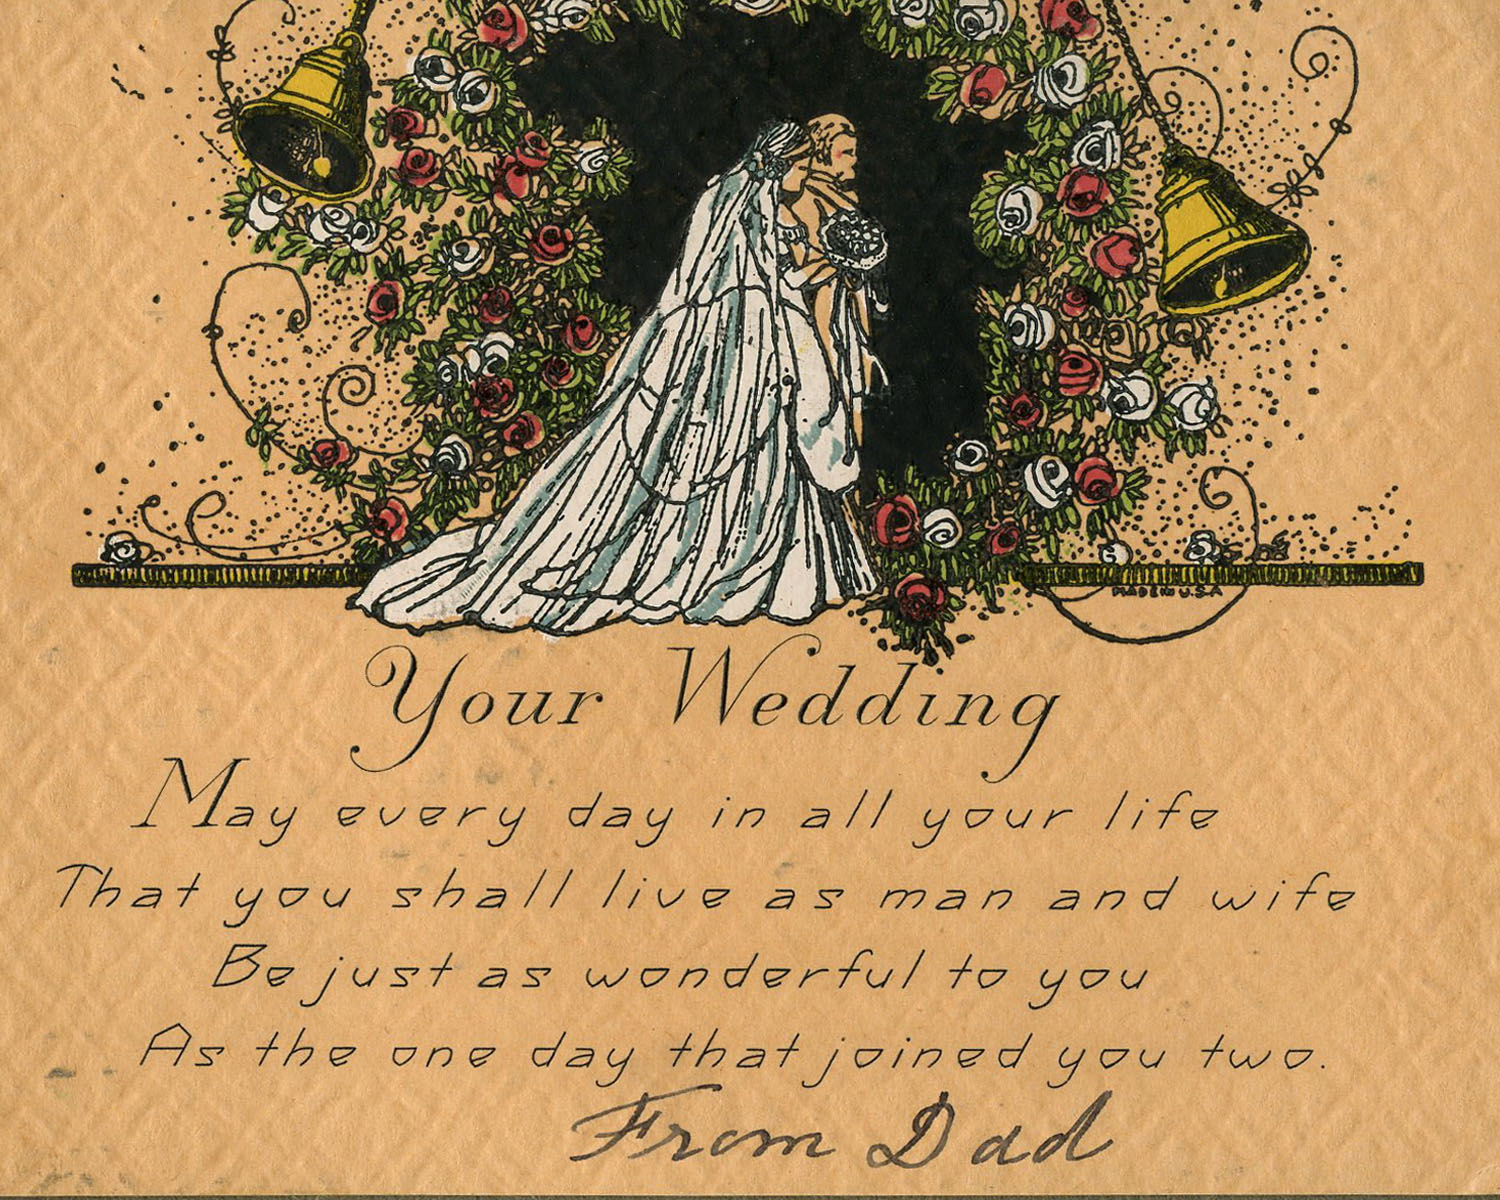 MADE IN U.S.A
Your Wedding
May every day in all your life
That you shall live as man and wife
Be just as wonderful to you
As the one day that joined you two.
From Dad